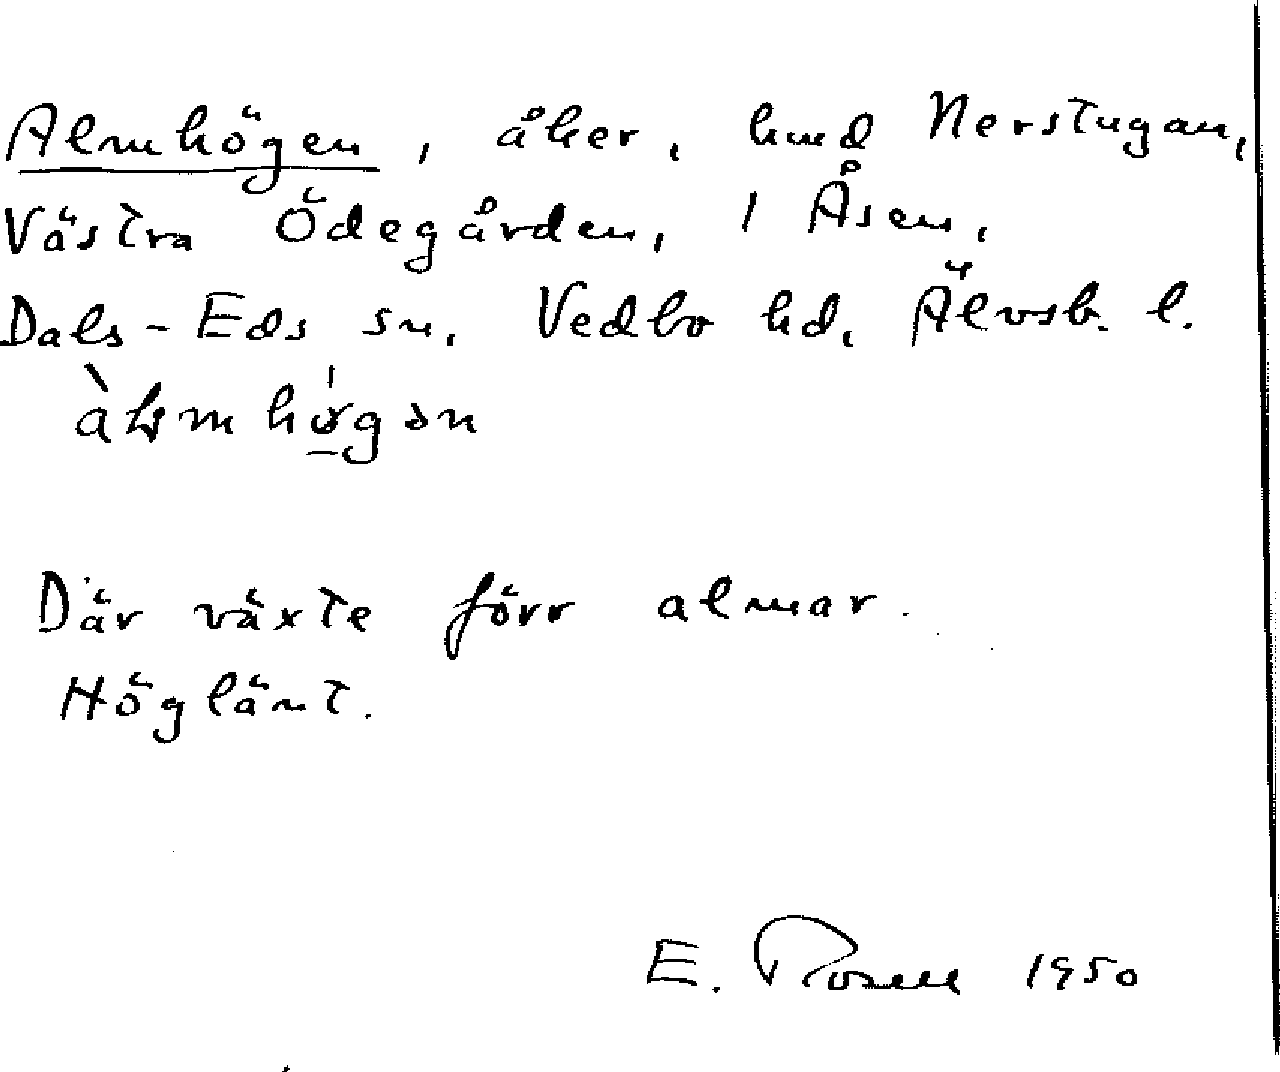 Almhögen, åker, hmd Nerstugan,
Västra Ödegården, 1 Åsen,
Dals-Eds sn. Vedbo hd. Älvsb. l.
Där växte förr almar.
Höglänt.
E. Rosell 1950